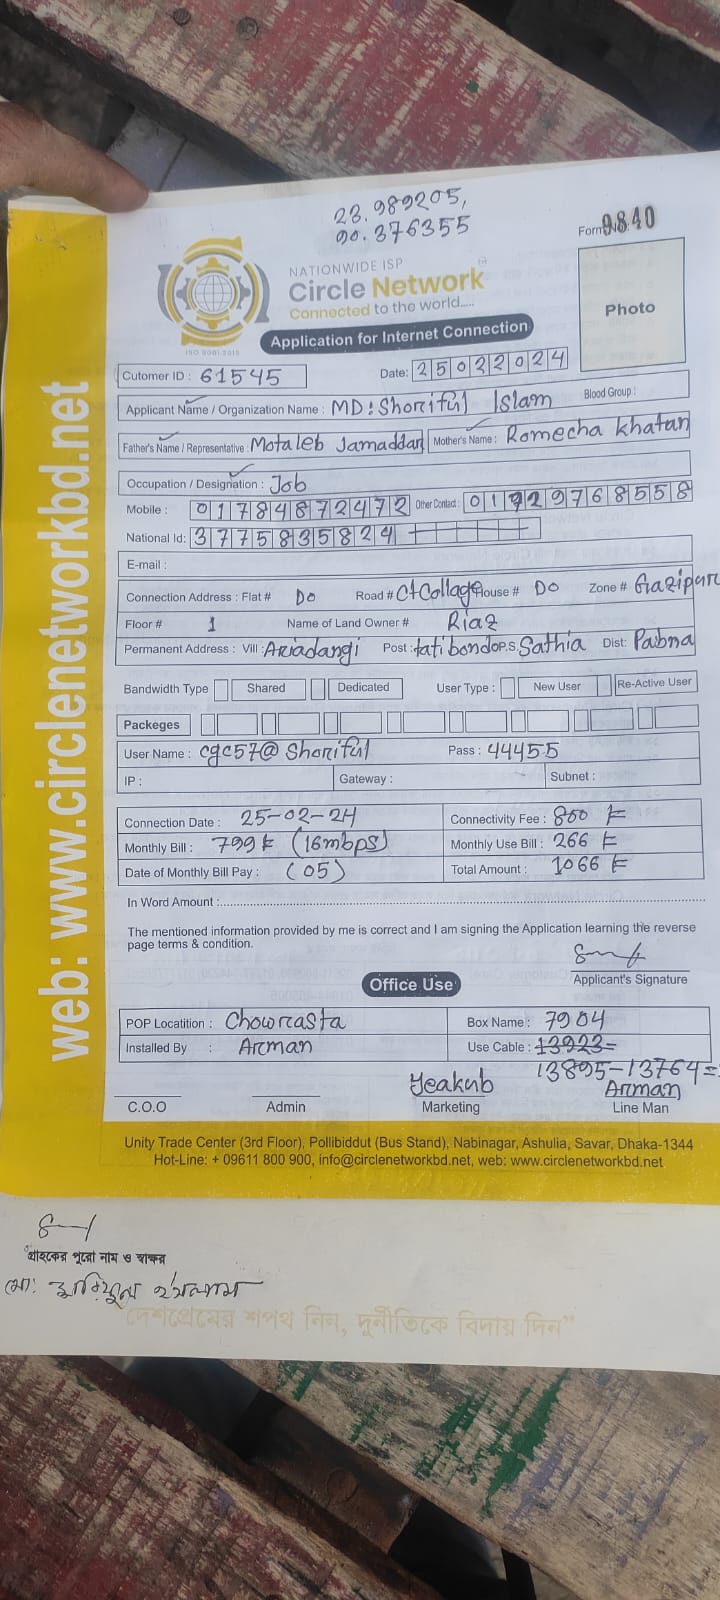 23.989205,
90.376355
Form No: 9840
NATIONWIDE ISP
Circle Network
Connected to the world.....
ISO 9001:2015
Application for Internet Connection
Photo
Cutomer ID : 61545 Date: 25022024
Applicant Name / Organization Name : MD: Shoriful Islam Blood Group :
Father's Name / Representative : Motaleb Jamaddar Mother's Name : Romecha Khatan
Occupation / Designation : Job
Mobile : 01784872472 Other Contact : 01929768558
National Id: 3775835824
E-mail :
Connection Address : Flat # Do Road # Ct Collage House # Do Zone # Gazipur
Floor # 1 Name of Land Owner # Riaz
Permanent Address : Vill : Ariadangi Post : tatibondo P.S. Sathia Dist: Pabna
Bandwidth Type Shared Dedicated User Type : New User Re-Active User
Packeges
User Name : cgc57@Shoriful Pass : 44455
IP : Gateway : Subnet :
Connection Date : 25-02-24 Connectivity Fee : 800 ৳
Monthly Bill : 799 ৳ (16mbps) Monthly Use Bill : 266 ৳
Date of Monthly Bill Pay : (05) Total Amount : 1066 ৳
In Word Amount :
The mentioned information provided by me is correct and I am signing the Application learning the reverse
page terms & condition.
Applicant's Signature
Office Use
POP Locatition : Chowrasta Box Name : 7904
Installed By : Arman Use Cable : 13923=
13895-13764=
Yeakub Arman
C.O.O Admin Marketing Line Man
Unity Trade Center (3rd Floor), Pollibiddut (Bus Stand), Nabinagar, Ashulia, Savar, Dhaka-1344
Hot-Line: + 09611 800 900, info@circlenetworkbd.net, web: www.circlenetworkbd.net
web: www.circlenetworkbd.net
গ্রাহকের পুরো নাম ও স্বাক্ষর
মো: শরিফুল ইসলাম
দেশপ্রেমের শপথ নিন, দুর্নীতিকে বিদায় দিন"